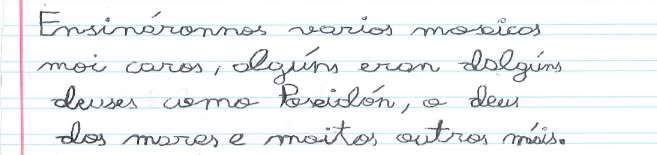 Ensináronnos varios mosaicos
moi caros, algúns eran dalgúns
deuses como Poseidón, o deus
dos mares e moitos outros máis.